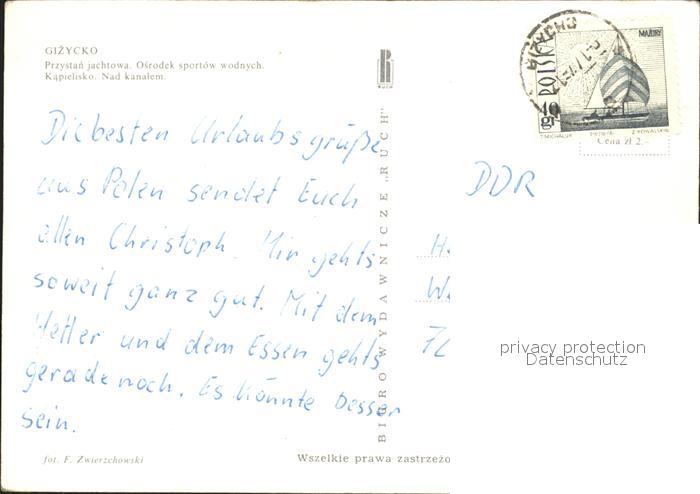 GIŻYCKO
Przystań jachtowa. Ośrodek sportów wodnych.
Kąpielisko. Nad kanałem.
RUCH
Die besten Urlaubsgrüße
aus Polen sendet Euch
allen Christoph. Mir gehts
soweit ganz gut. Mit dem
Wetter und dem Essen gehts
gerade noch. Es könnte besser
sein.
fot. F. Zwierzchowski
BIURO WYDAWNICZE „RUCH"
Wszelkie prawa zastrzeżo
GIŻYCKO
POLSKA
MAZURY
40
gr
T. MICHALUK
Z. KOWALSKI
Cena zł 2.—
DDR
H
W
72
privacy protection
Datenschutz